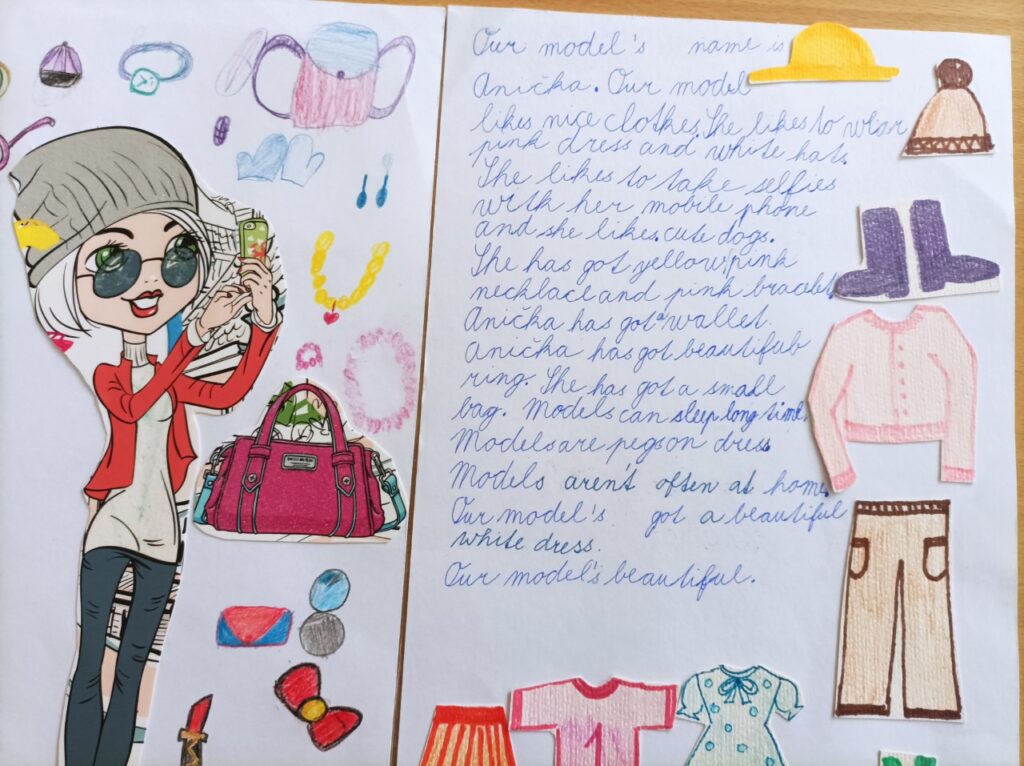 Our model's name is
Anička. Our model
likes nice clothes. She likes to wear
pink dress and white hat.
She likes to take selfies
with her mobile phone
and she likes cute dogs.
She has got yellow, pink
necklace and pink bracelet.
Anička has got a wallet.
Anička has got beautiful
ring. She has got a small
bag. Models can sleep long time.
Models are pegs on dress.
Models aren't often at home.
Our model's got a beautiful
white dress.
Our model's beautiful.
1